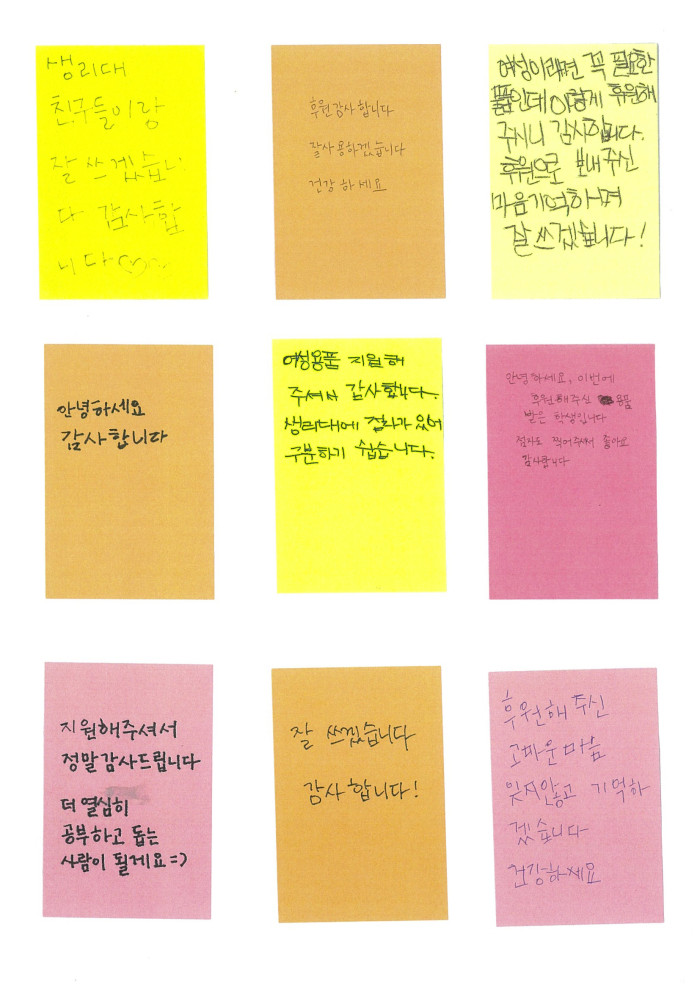 생리대
친구들이랑
잘 쓰겠습니
다 감사합
니다♡♡
후원감사합니다
잘사용하겠습니다
건강하세요
여성이라면 꼭 필요한
품인데 이렇게 후원해
주시니 감사합니다.
후원으로 보내주신
마음기억하며
잘 쓰겠습니다!
안녕하세요
감사합니다
여성용품 지원해
주셔서 감사합니다.
생리대에 점자가 있어
구분하기 쉽습니다.
안녕하세요, 이번에
후원해주신 용품
받은 학생입니다
점자도 찍어주셔서 좋아요
감사합니다
지원해주셔서
정말감사드립니다
더 열심히
공부하고 돕는
사람이 될게요=)
잘 쓰겠습니다
감사합니다!
후원해주신
고마운마음
잊지않고 기억하
겠습니다
건강하세요